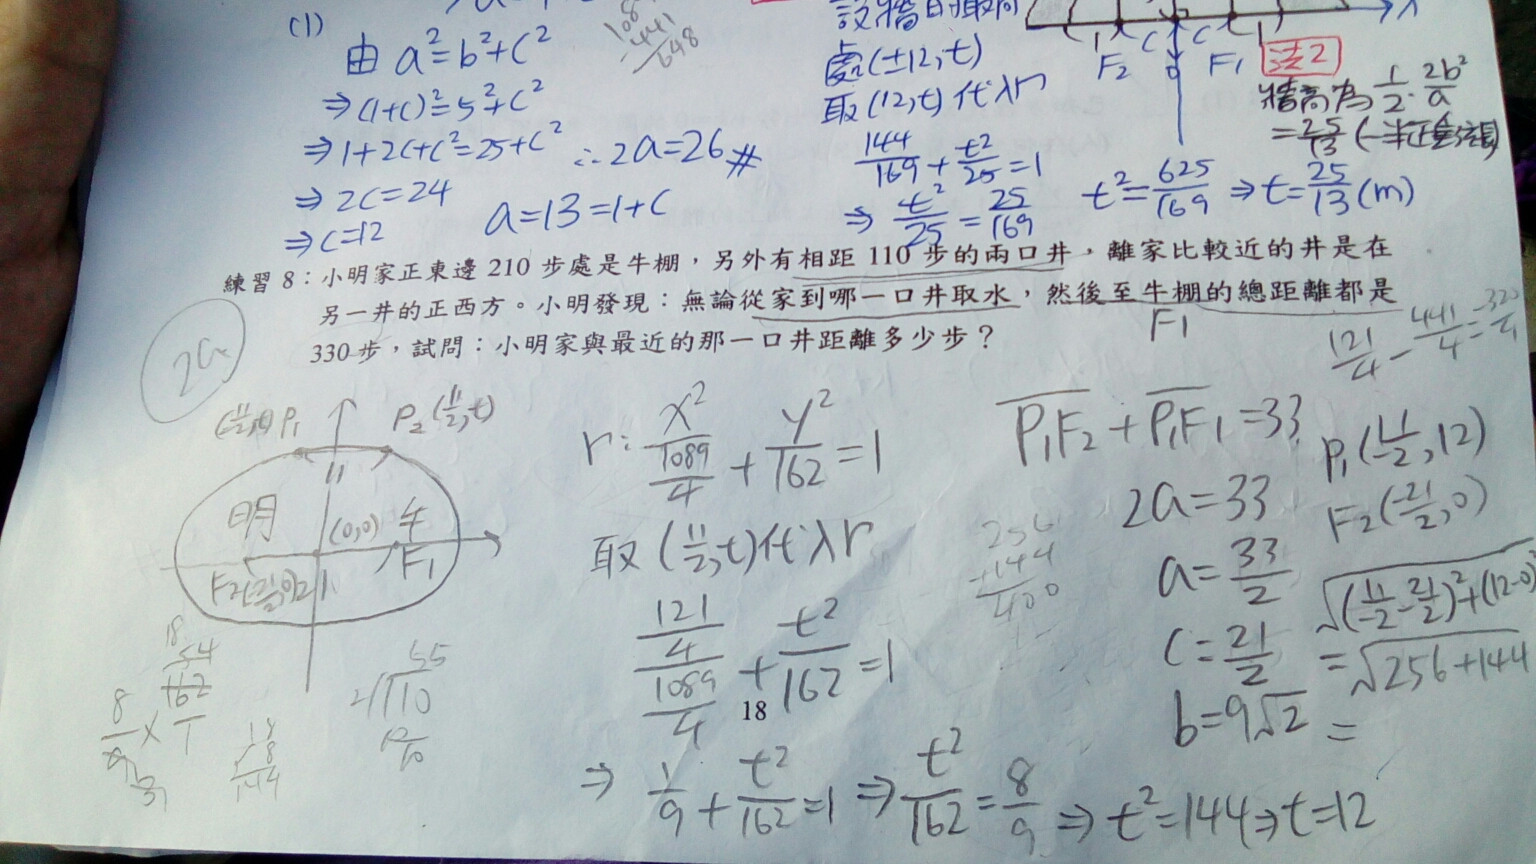 (1)
由 a²=b²+c²
⇒(1+c)²=5²+c²
⇒1+2c+c²=25+c²
⇒2c=24
⇒c=12
∴2a=26#
a=13=1+c
處(±12,t)
取(12,t)代入Γ
144/169+t²/25=1
⇒t²/25=25/169
t²=625/169⇒t=25/13(m)
F₂ F₁
法2
牆高為 1/2·2b²/a
=25/13
練習 8：小明家正東邊 210 步處是牛棚，另外有相距 110 步的兩口井，離家比較近的井是在
另一井的正西方。小明發現：無論從家到哪一口井取水，然後至牛棚的總距離都是
330 步，試問：小明家與最近的那一口井距離多少步？
F1
2a
121/4-441/4=-320/4
P₁ P₂(11/2,t)
明 (0,0) 牛
F₁
Γ:x²/(1089/4)+y²/162=1
取(11/2,t)代入Γ
(121/4)/(1089/4)+t²/162=1
⇒1/9+t²/162=1⇒t²/162=8/9⇒t²=144⇒t=12
P₁F₂+P₁F₁=33
2a=33
a=33/2
c=21/2
b=9√2
P₁(11/-2,12)
F₂(-21/2,0)
√((11/-2--21/2)²+(12-0)²
=√256+144
=
256
+144
400
55
2√110
18